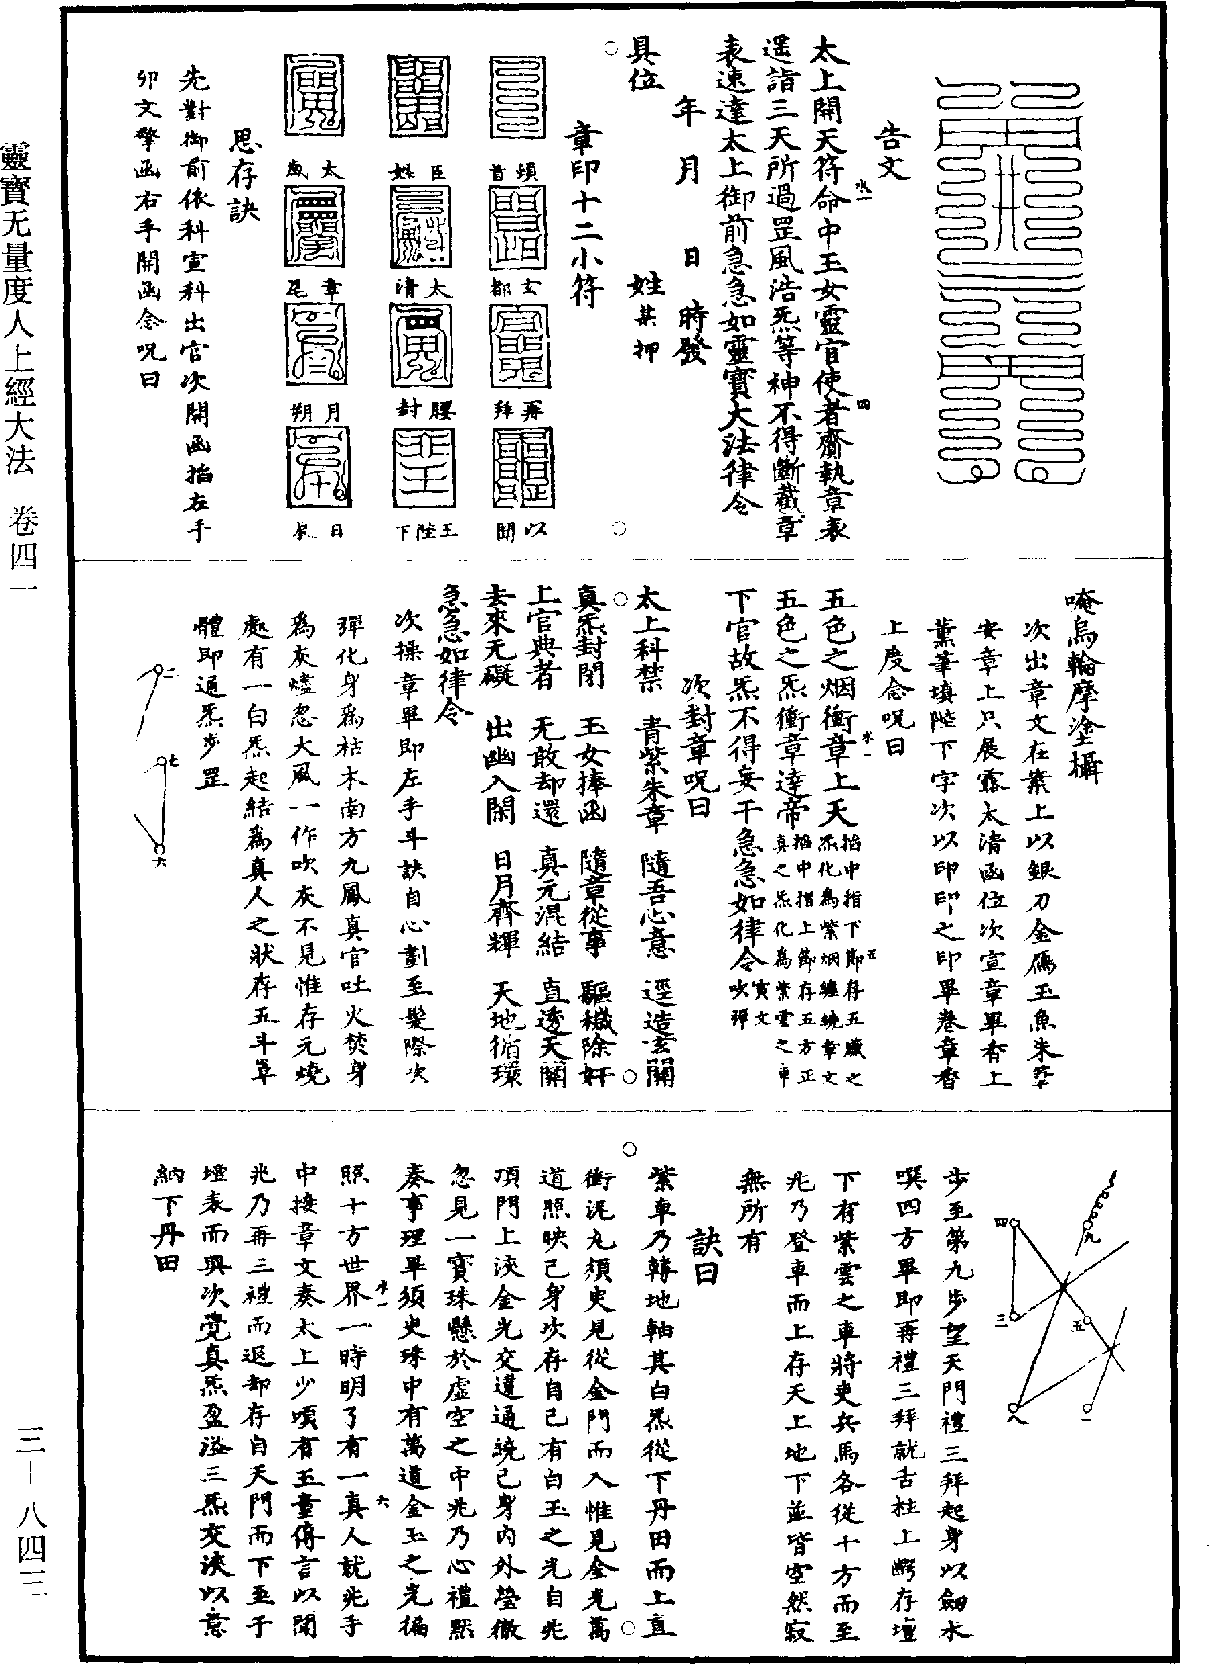 靈寶无量度人上經大法 卷四一
三-八四二
告文
太上開天符命中玉女靈官使者齎執章表
遥詣三天所過罡風浩炁等神不得斷截章
表速達太上御前急急如靈寶大法律令
年 月 日 時發
具位 姓某押
章印十二小符
頓首
玄都
再拜
以聞
臣姓
太清
腰封
王陛下
太歲
章尾
月朔
日辰
思存訣
先對御前依科宣科出官次開函掐左手
卯文擎函右手開函念呪曰
唵烏輪摩塗攝
次出章文在案上以銀刀金鴈玉魚朱筆
安章上只展露太清函位次宣章畢香上
薰筆填陛下字次以印印之印畢卷章香
上度念呪曰
五色之烟衝章上天掐中指下節存五臟之炁化為紫烟纏繞章文
五色之炁衝章達帝掐中指上節存五方正真之炁化為紫雲之車
下官故炁不得妄干急急如律令寅文吹彈
次封章呪曰
太上科禁 青紫朱章 隨吾心意 逕造玄關
真炁封閉 玉女捧函 隨章從事 驅穢除奸
上官典者 无敢却還 真元混結 直透天關
去來无礙 出幽入閑 日月齊輝 天地循環
急急如律令
次操章畢即左手斗訣自心劃至髮際次
彈化身為枯木南方九鳳真官吐火焚身
為灰燼忽大風一作吹灰不見惟存元燒
處有一白炁起結為真人之狀存五斗罩
體即通炁步罡
二
七
六
九
四
三
五
八
一
步至第九步望天門禮三拜起身以劍水
噀四方畢即再禮三拜就舌柱上腭存壇
下有紫雲之車將吏兵馬各從十方而至
兆乃登車而上存天上地下並皆空然寂
無所有
訣曰
紫車乃轉地軸其白炁從下丹田而上直
衝泥丸須臾見從金門而入惟見金光萬
道照映己身次存自己有白玉之光自兆
頂門上浹金光交遘通繞已身內外瑩徹
忽見一寶珠懸於虛空之中兆乃心禮黙
奏事理畢須臾珠中有萬道金玉之光徧
照十方世界一時明了有一真人就兆手
中接章文奏太上少頃有玉童傳言以聞
兆乃再三禮而退却存自天門而下至于
壇表而興次覺真炁盈溢三炁交浹以意
納下丹田